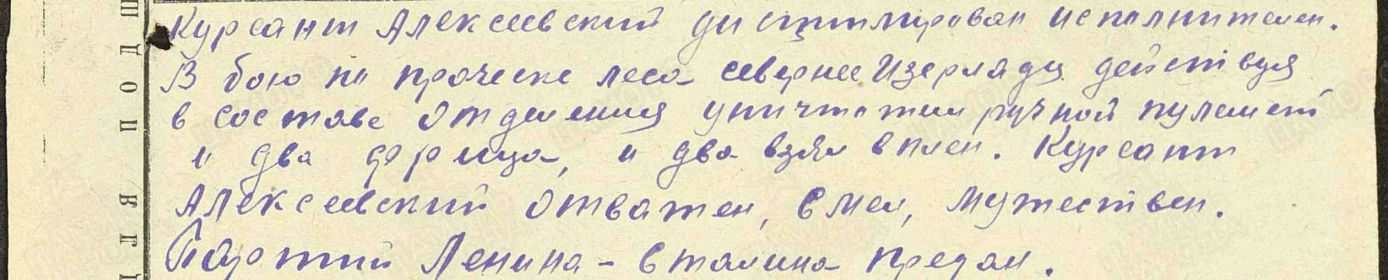 Курсант Алексеевский дисциплирован исполнителен.
В бою по проческе леса севернее Изерлядц действуя
в составе отделения уничтожил ручной пулемет
и два фрица, и два взял в плен. Курсант
Алексеевский отважен, смел, мужествен.
Партии Ленина – Сталина предан.